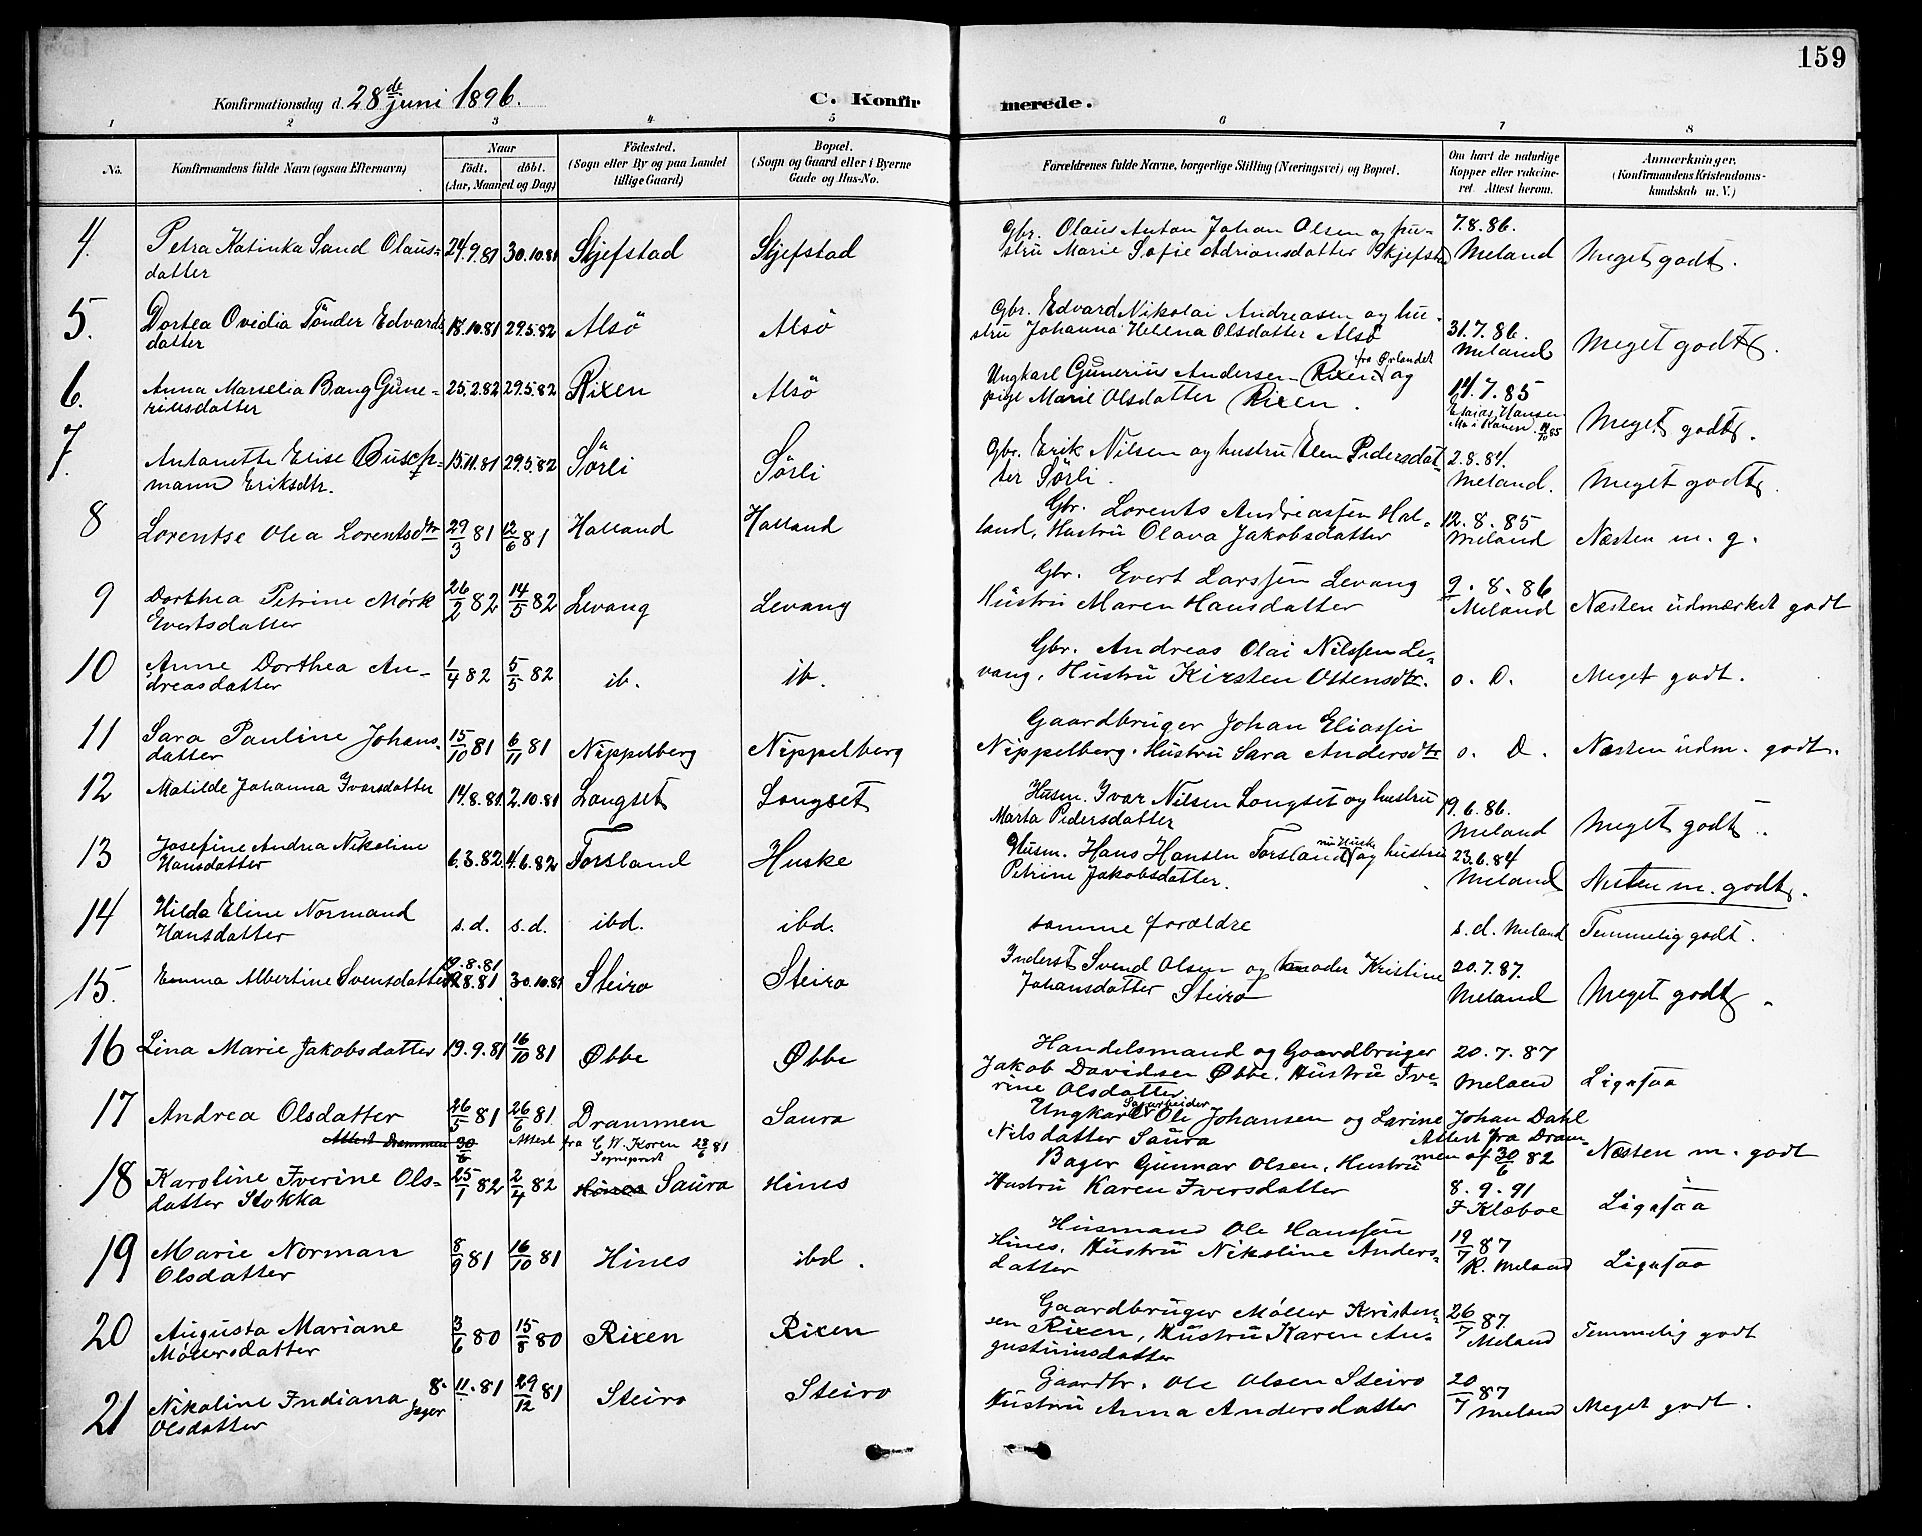 159
Konfirmationsdag d. 28de juni 1896. C. Konfirmerede.
1 2 3 4 5 6 7 8
No. Konfirmandens fulde Navn (ogsaa Efternavn) Naar født. døbt. (Aar, Maaned og Dag) Fødested. (Sogn eller By og paa Landet tillige Gaard) Bopæl. (Sogn og Gaard eller i Byerne Gade og Hus-No. Forældrenes fulde Navne, borgerlige Stilling (Næringsvei) og Bopæl. Om havt de naturlige Kopper eller vaccineret. Attest herom. Anmærkninger. (Konfirmandens Kristendomskundskab m. V.)
4. Petra Katinka Sand Olaus- 24.9.81 30.10.81 Skjefstad Skjefstad Gbr. Olaus Anton Johan Olsen og hu- 7.8.86.
datter stru Marie Sofie Adriansdatter Skjefstad Meland Meget godt.
5. Dortea Ovidia Tönder Edvards 18.10.81 29.5.82 Alsö Alsö Gbr. Edvard Nikolai Andreasen og hu-
datter stru Johanna Helena Olsdatter Alsö 31.7.86. Meland Meget godt.
6. Anna Marselia Bang Gune- 25.2.82 29.5.82 Rixen Alsö Ungkarl Gunerius Andersen Rixen fra Ørlandet og 14.7.85
riusdatter pige Marie Olsdatter Rixen. Esaias Hansen Meget godt.
7. Antonette Elise Busch- 15.11.81 29.5.82 Sörli Sörli Gbr. Erik Nilsen og hustru Elen Pedersdat- 2.8.84.
mann Eriksdtr. ter Sörli. Meland. Meget godt.
8 Lorentse Olea Lorentsdtr 29/3 81 12/6 81 Halland Halland Gbr. Lorents Andreassen Hal- 12.8.85
land, Hustru Olava Jakobsdatter Meland Næsten m. g.
9 Dorthea Petrine Mørk 26/2 82 14/5 82 Levang Levang Gbr. Evert Larssen Levang 9.8.86
Evertsdatter Hustru Maren Hansdatter Meland Næsten udmærket godt
10 Anne Dorthea An- 1/4 82 5/5 82 ib. ib. Gbr. Andreas Olai Nilssen Le-
dreasdatter vang, Hustru Kirsten Ottensdtr. o. D. Meget godt.
11 Sara Pauline Johans- 15/10 81 6/11 81 Nippelberg Nippelberg Gaardbruger Johan Eliassen
datter Nippelberg. Hustru Sara Andersdtr o. D. Næsten udm. godt.
12 Matilde Johanna Ivarsdatter 14.8.81 2.10.81 Langset Langset Husm. Ivar Nilsen Langset og hustru 19.6.86.
Marta Pedersdatter Meland Meget godt.
13 Josefine Andrea Nikoline 6.3.82 4.6.82 Forsland Huske Husm. Hans Hansen Forsland nu Huske og hustru 23.6.84
Hansdatter Petrine Jakobsdatter. Meland Næsten m. godt.
14 Hilda Eline Normand s.d. s.d. ibd. ibd. samme forældre s.d. Meland Temmelig godt.
Hansdatter
15. Emma Albertine Svensdatter 19.8.81 19.8.81 30.10.81 Steiro Steiro Inderst Svend Olsen og moder Kristine 20.7.87.
Johansdatter Steiro Meland Meget godt.
16 Lina Marie Jakobsdatter 19.9.81 16/10 81 Øbbe Øbbe Handelsmand og Gaardbruger 20.7.87
Jakob Davidsen Øbbe. Hustru Ive- Meland Ligesaa
rine Olsdatter
17 Andrea Olsdatter 26/5 81 26/6 81 Drammen Saura Ungkarl Sagarbeider Ole Johansen og Larine Johan Dahl
Attest Drammen 30/6 Attest fra C W. Koren 28/6 81 Sogneprest Nilsdatter Saura Attest fra Drammen af 30/6 82 Næsten m. godt
18 Karoline Iverine Ols- 25/1 82 2/4 82 Hines Saura Hines Bager Gunnar Olsen, Hustru
datter Stokka Hustru Karen Iversdatter 8.9.91 F Klæboe Ligesaa
19 Marie Norman 8/9 81 16/10 81 Hines ibd. Husmand Ole Hanssen
Olsdatter Hines. Hustru Nikoline Anders- 19/7 87
datter K. Meland Ligesaa
20 Augusta Mariane 3/6 80 15/8 80 Rixen Rixen Gaardbruger Møller Kristen- 26/7 87.
Møllersdatter sen Rixen, Hustru Karen Au- Meland Temmelig godt
gustinusdatter
21 Nikoline Indiana Jager 8.11.81 29/12 81 Steiro Steiro Gaardbr. Ole Olsen Steiro 20/7 87
Olsdatter Hustru Anna Andersdatter Meland Meget godt.